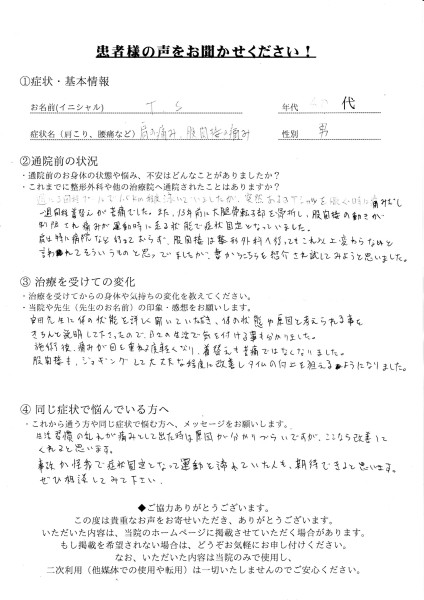 患者様の声をお聞かせください！
①症状・基本情報
お名前(イニシャル) T.S 年代 代
症状名（肩こり、腰痛など） 肩の痛み、股関節の痛み 性別 男
②通院前の状況
・通院前のお身体の状態や悩み、不安はどんなことがありましたか？
・これまでに整形外科や他の治療院へ通院されたことはありますか？
週2回程 プールで1.5km程泳いでいましたが、突然ある日 肩が痛みだし
週間程着替えが苦痛でした。また、13年前に大腿骨転子部を骨折し、股関節の動きが
制限され痛みが運動時に走る状態で症状固定となっていました。
肩は特に病院など行っておらず、股関節は整形外科へ行ってもこれ以上変わらないと
言われてそういうものと思っていましたが、妻からこちらを紹介され試してみようと思いました。
③ 治療を受けての変化
・治療を受けてからの身体や気持ちの変化を教えてください。
・当院や先生（先生のお名前）の印象・感想をお願いします。
先生に体の状態を詳しく聞いていただき、体の状態や原因と考えられる事を
きちんと説明して下さったので、日々の生活で気を付ける事も分かりました。
施術後、痛みが日を重ねる度軽くなり、着替えも苦痛ではなくなりました。
股関節も、ジョギングして大丈夫な程度に改善しタイムの向上を狙えるようになりました。
④ 同じ症状で悩んでいる方へ
・これから通う方や同じ症状で悩む方へ、メッセージをお願いします。
生活習慣の乱れが痛みとして出た時は原因が分かりづらいですが、ここなら改善して
くれると思います。
事故か怪我で症状固定となって運動を諦めていた人も、期待できると思います。
ぜひ相談してみて下さい。
◆ご協力ありがとうございます。
この度は貴重なお声をお寄せいただき、ありがとうございます。
いただいた内容は、当院のホームページに掲載させていただく場合があります。
もし掲載を希望されない場合は、どうぞお気軽にお申し付けください。
なお、いただいた内容は当院のみで使用し、
二次利用（他媒体での使用や転用）は一切いたしませんのでご安心ください。